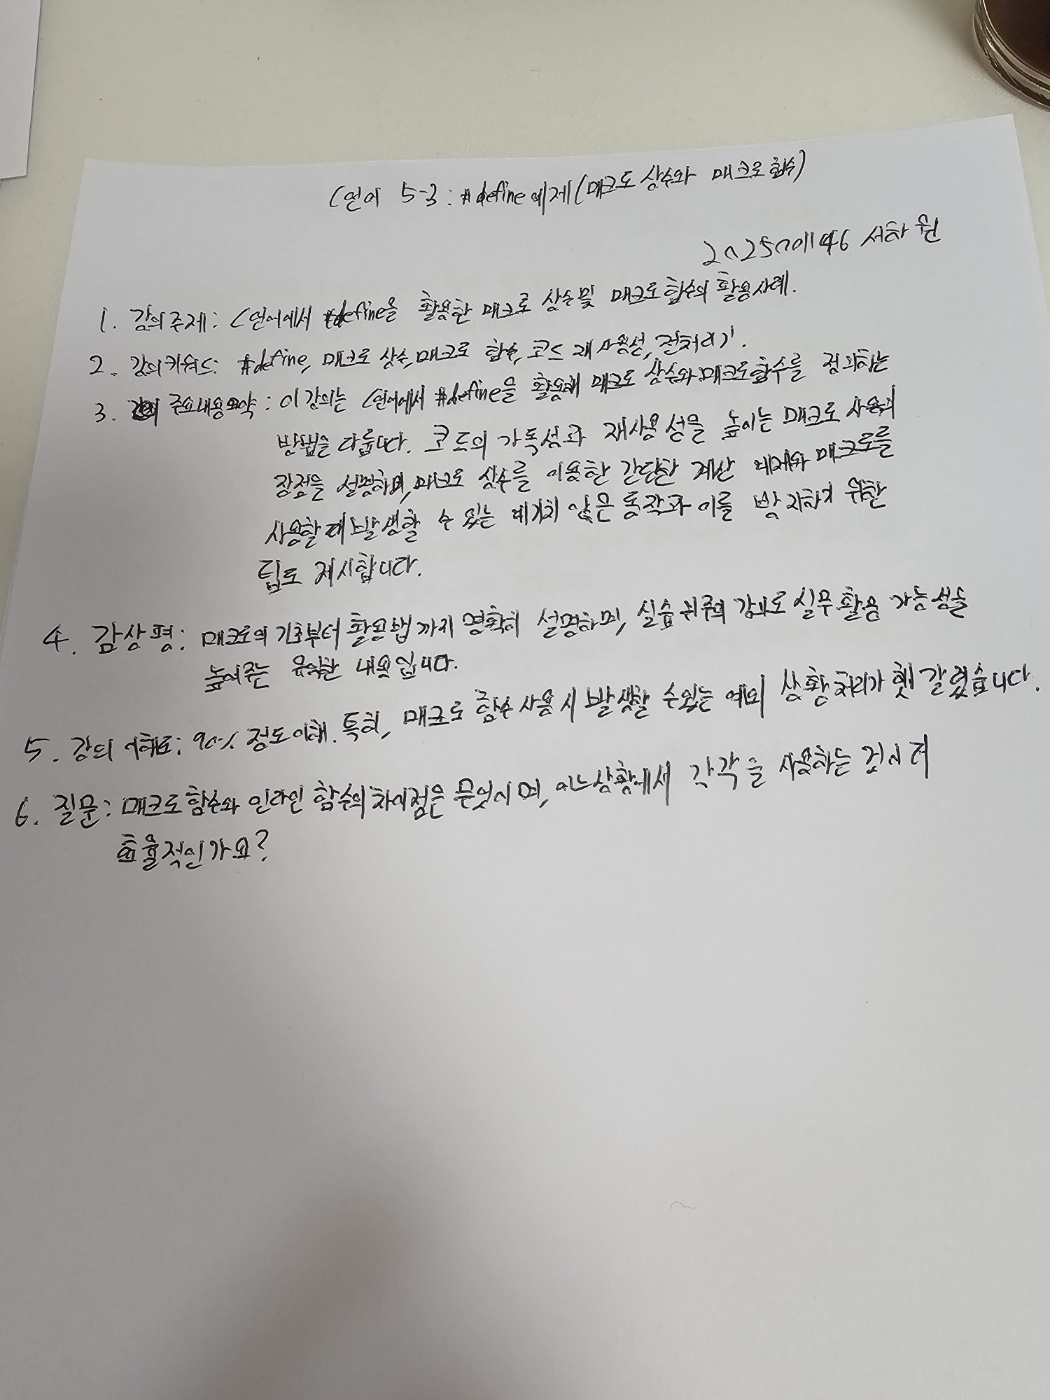 C언어 5-3 : #define 예제 (매크로 상수와 매크로 함수)
서하원
1. 강의주제 : C언어에서 #define을 활용한 매크로 상수 및 매크로 함수의 활용사례.
2. 강의키워드 : #define, 매크로 상수, 매크로 함수, 코드 재사용성, 전처리기.
3. 주요내용요약 : 이 강의는 C언어에서 #define을 활용해 매크로 상수와 매크로함수를 정의하는
방법을 다룹니다. 코드의 가독성과 재사용성을 높이는 매크로 사용의
장점을 설명하며, 매크로 상수를 이용한 간단한 계산 예제와 매크로를
사용할때 발생할 수 있는 예기치 않은 동작과 이를 방지하기 위한
팁도 제시합니다.
4. 감상평 : 매크로의 기초부터 활용법까지 명확히 설명하며, 실습 위주의 강의로 실무 활용 가능성을
높여주는 유익한 내용입니다.
5. 강의 이해도 : 90% 정도 이해. 특히, 매크로 함수 사용 시 발생할 수있는 예외 상황 처리가 헷갈렸습니다.
6. 질문 : 매크로 함수와 인라인 함수의 차이점은 무엇이며, 어느상황에서 각각을 사용하는 것이 더
효율적인가요?